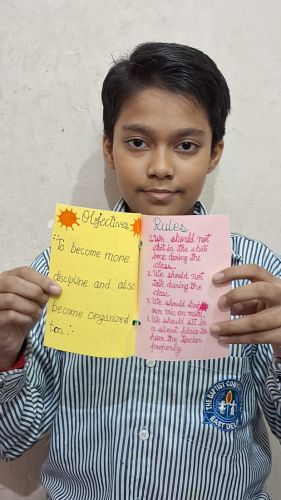 Objectives
"To become more
discipline and also
become organized
too."
Rules
1. We should not
chat in the chat
box during the
class.
2. We should not
talk during the
class.
3. We should keep
our mic on mute.
4. We should sit in
a silent place to
hear the teacher
properly.
THE BAPTIST CONVENT
EAST DELHI